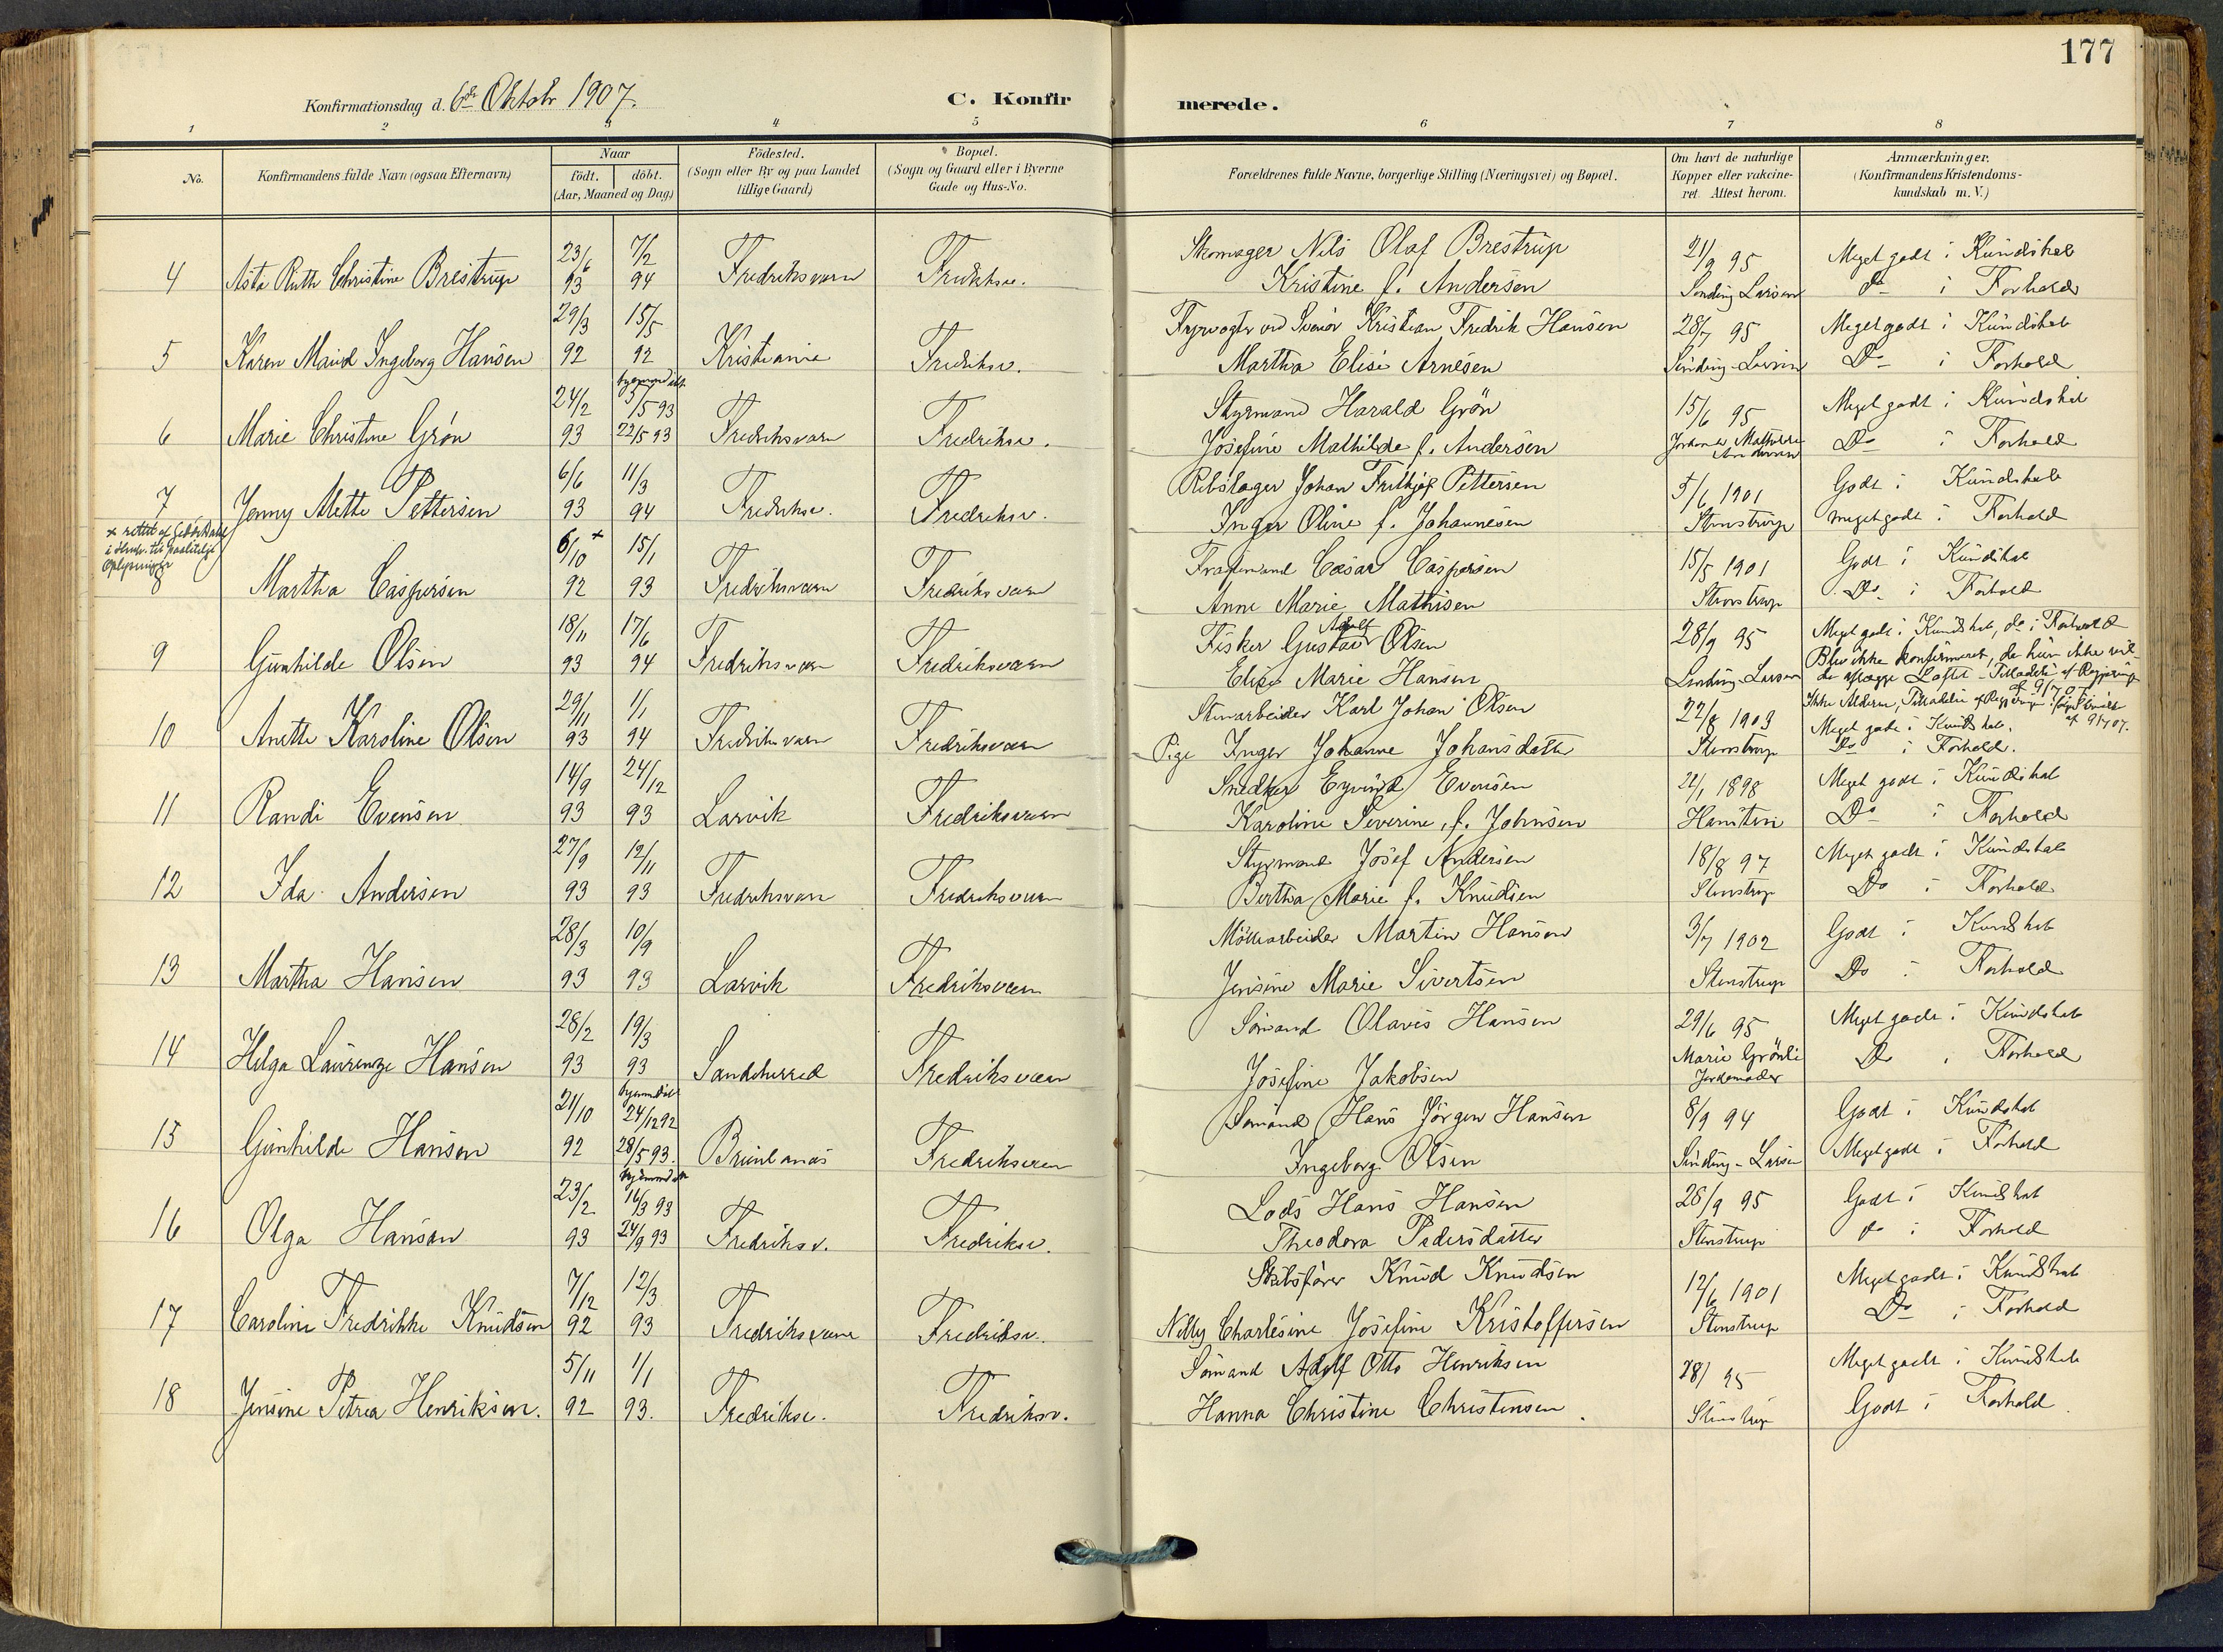 177
Konfirmationsdag d. 6de Oktobr 1907.
C. Konfirmerede.
1 2 3 4 5 6 7 8
No.
Konfirmandens fulde Navn (ogsaa Efternavn)
Naar
födt. döbt.
(Aar, Maaned og Dag)
Födested.
(Sogn eller By og paa Landet
tillige Gaard)
Bopæl.
(Sogn og Gaard eller i Byerne
Gade og Hus-No.
Forældrenes fulde Navne, borgerlige Stilling (Næringsvei) og Bopæl.
Om havt de naturlige
Kopper eller vakcine-
ret. Attest herom.
Anmærkninger.
(Konfirmandens Kristendoms-
kundskab m. V.)
23/6 7/2 Skomager Nils Olaf Brestrup 21/9 95 Meget godt i Kundskab
4 Asta Ruth Christine Brestrup 93 94 Fredriksværn Fredriksv. Kristine f. Andersen Sinding Larsen do i Forhold
29/3 15/5 Fyrvogter ved Svenør Kristian Fredrik Hansen 28/7 95 Meget godt i Kundskab
5 Karen Maud Ingeborg Hansen 92 92 Kristiania Fredriksv. Martha Elise Arnesen Sinding-Larsen Do i Forhold
24/2 hjemmedøbt /5 93 Styrmand Harald Grøn 15/6 95 Meget godt i Kundskab
6 Marie Christine Grøn 93 22/5 93 Fredriksværn Fredriksv. Josefine Mathilde f. Andersen Jordmor Mathilde Andersen Do i Forhold
6/6 11/3 Rebslager Johan Frithjof Pettersen 5/6 1901 Godt i Kundskab
7 Jenny Mette Pettersen 93 94 Fredriksv. Fredriksv. Inger Oline f. Johannesen Stenstrup meget godt i Forhold
x rettet af
i til paalitelige
Oplysninger
6/10 x 15/1 Cæsar Caspersen 15/5 1901 Godt i Kundskab
8 Martha Caspersen 92 93 Fredriksværn Fredriksværn Anne Marie Mathisen Stenstrup Do. i Forhold
18/11 17/6 Fisker Gustav Adolf Olsen 28/9 95 Meget godt i Kundskab, do i Forhold
9 Gunhilde Olsen 93 94 Fredriksværn Fredriksværn Elise Marie Hansen Sinding-Larsen Blev ikke konfirmeret, da hun ikke vil-
de aflægge Løfte - Tilladelse af
29/11 1/1 Stenarbeider Karl Johan Olsen 22/8 1903 Ikke Alderen, Tilladelse af 9/7 07.
Meget godt i Kundskab.
10 Anette Karoline Olsen 93 94 Fredriksværn Fredriksværn Pige Inger Johanne Johansdatter Stenstrup Do i Forhold.
14/9 24/12 Snedker Eyvind Evensen 22/1 1898 Meget godt i Kundskab
11 Randi Evensen 93 93 Larvik Fredriksværn Karoline Severine, f. Johnsen Hansteen Do i Forhold
27/9 12/11 Styrmand Josef Andersen 18/8 97 Meget godt i Kundskab
12 Ida Andersen 93 93 Fredriksværn Fredriksværn Bertha Marie f. Knudsen Stenstrup Do i Forhold
28/3 10/9 Møllearbeider Martin Hansen 3/7 1902 Godt i Kundskab
13 Martha Hansen 93 93 Larvik Fredriksværn Jensine Marie Sivertsen Stenstrup Do i Forhold
28/2 19/3 Sømand Olavis Hansen 29/6 95 Meget godt i Kundskab
14 Helga Laurenze Hansen 93 93 Sandeherred Fredriksværn Josefine Jakobsen Marie Grønli Jordemoder Do i Forhold
21/10 hjemmedøbt 24/12 92 Sømand Hans Jörgen Hansen 8/9 94 Godt i Kundskab
15 Gunhilde Hansen 92 28/5 93. Brunlanæs Fredriksværn Ingeborg Olsen Sinding-Larsen Meget godt i Forhold
23/2 hjemmedøbt 16/3 93 Lods Hans Hansen 28/9 95 Godt i Kundskab
16 Olga Hansen 93 24/9 93 Fredriksv. Fredriksv. Theodora Pedersdatter Stenstrup do i Forhold
7/12 12/3 Skibsfører Knud Knudsen 12/6 1901 Meget godt i Kundskab
17 Caroline Fredrikke Knudsen 92 93 Fredriksværn Fredriksv. Nelly Charlesine Josefine Kristoffersen Stenstrup Do i Forhold
5/11 1/1 Sømand Adolf Otto Henriksen 28/ 95 Meget godt i Kundskab
18 Jensine Petrea Henriksen. 92 93. Fredriksv. Fredriksv. Hanna Christine Christensen. Stenstrup Godt i Forhold